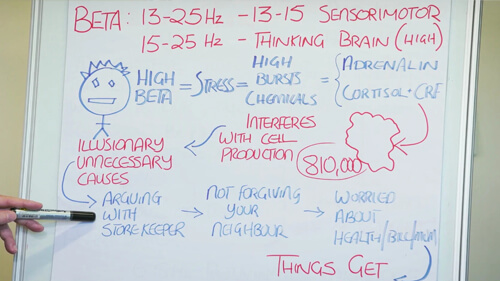 BETA: 13-25Hz - 13-15 SENSORIMOTOR
15-25 Hz - THINKING BRAIN (HIGH)
HIGH BETA = STRESS = HIGH BURSTS CHEMICALS = { ADRENALIN
CORTISOL + CRF
INTERFERES
WITH CELL
PRODUCTION
810,000
ILLUSIONARY
UNNECESSARY
CAUSES
ARGUING
WITH
STOREKEEPER
NOT FORGIVING
YOUR
NEIGHBOUR
WORRIED
ABOUT
HEALTH/BILL/MUM
THINGS GET